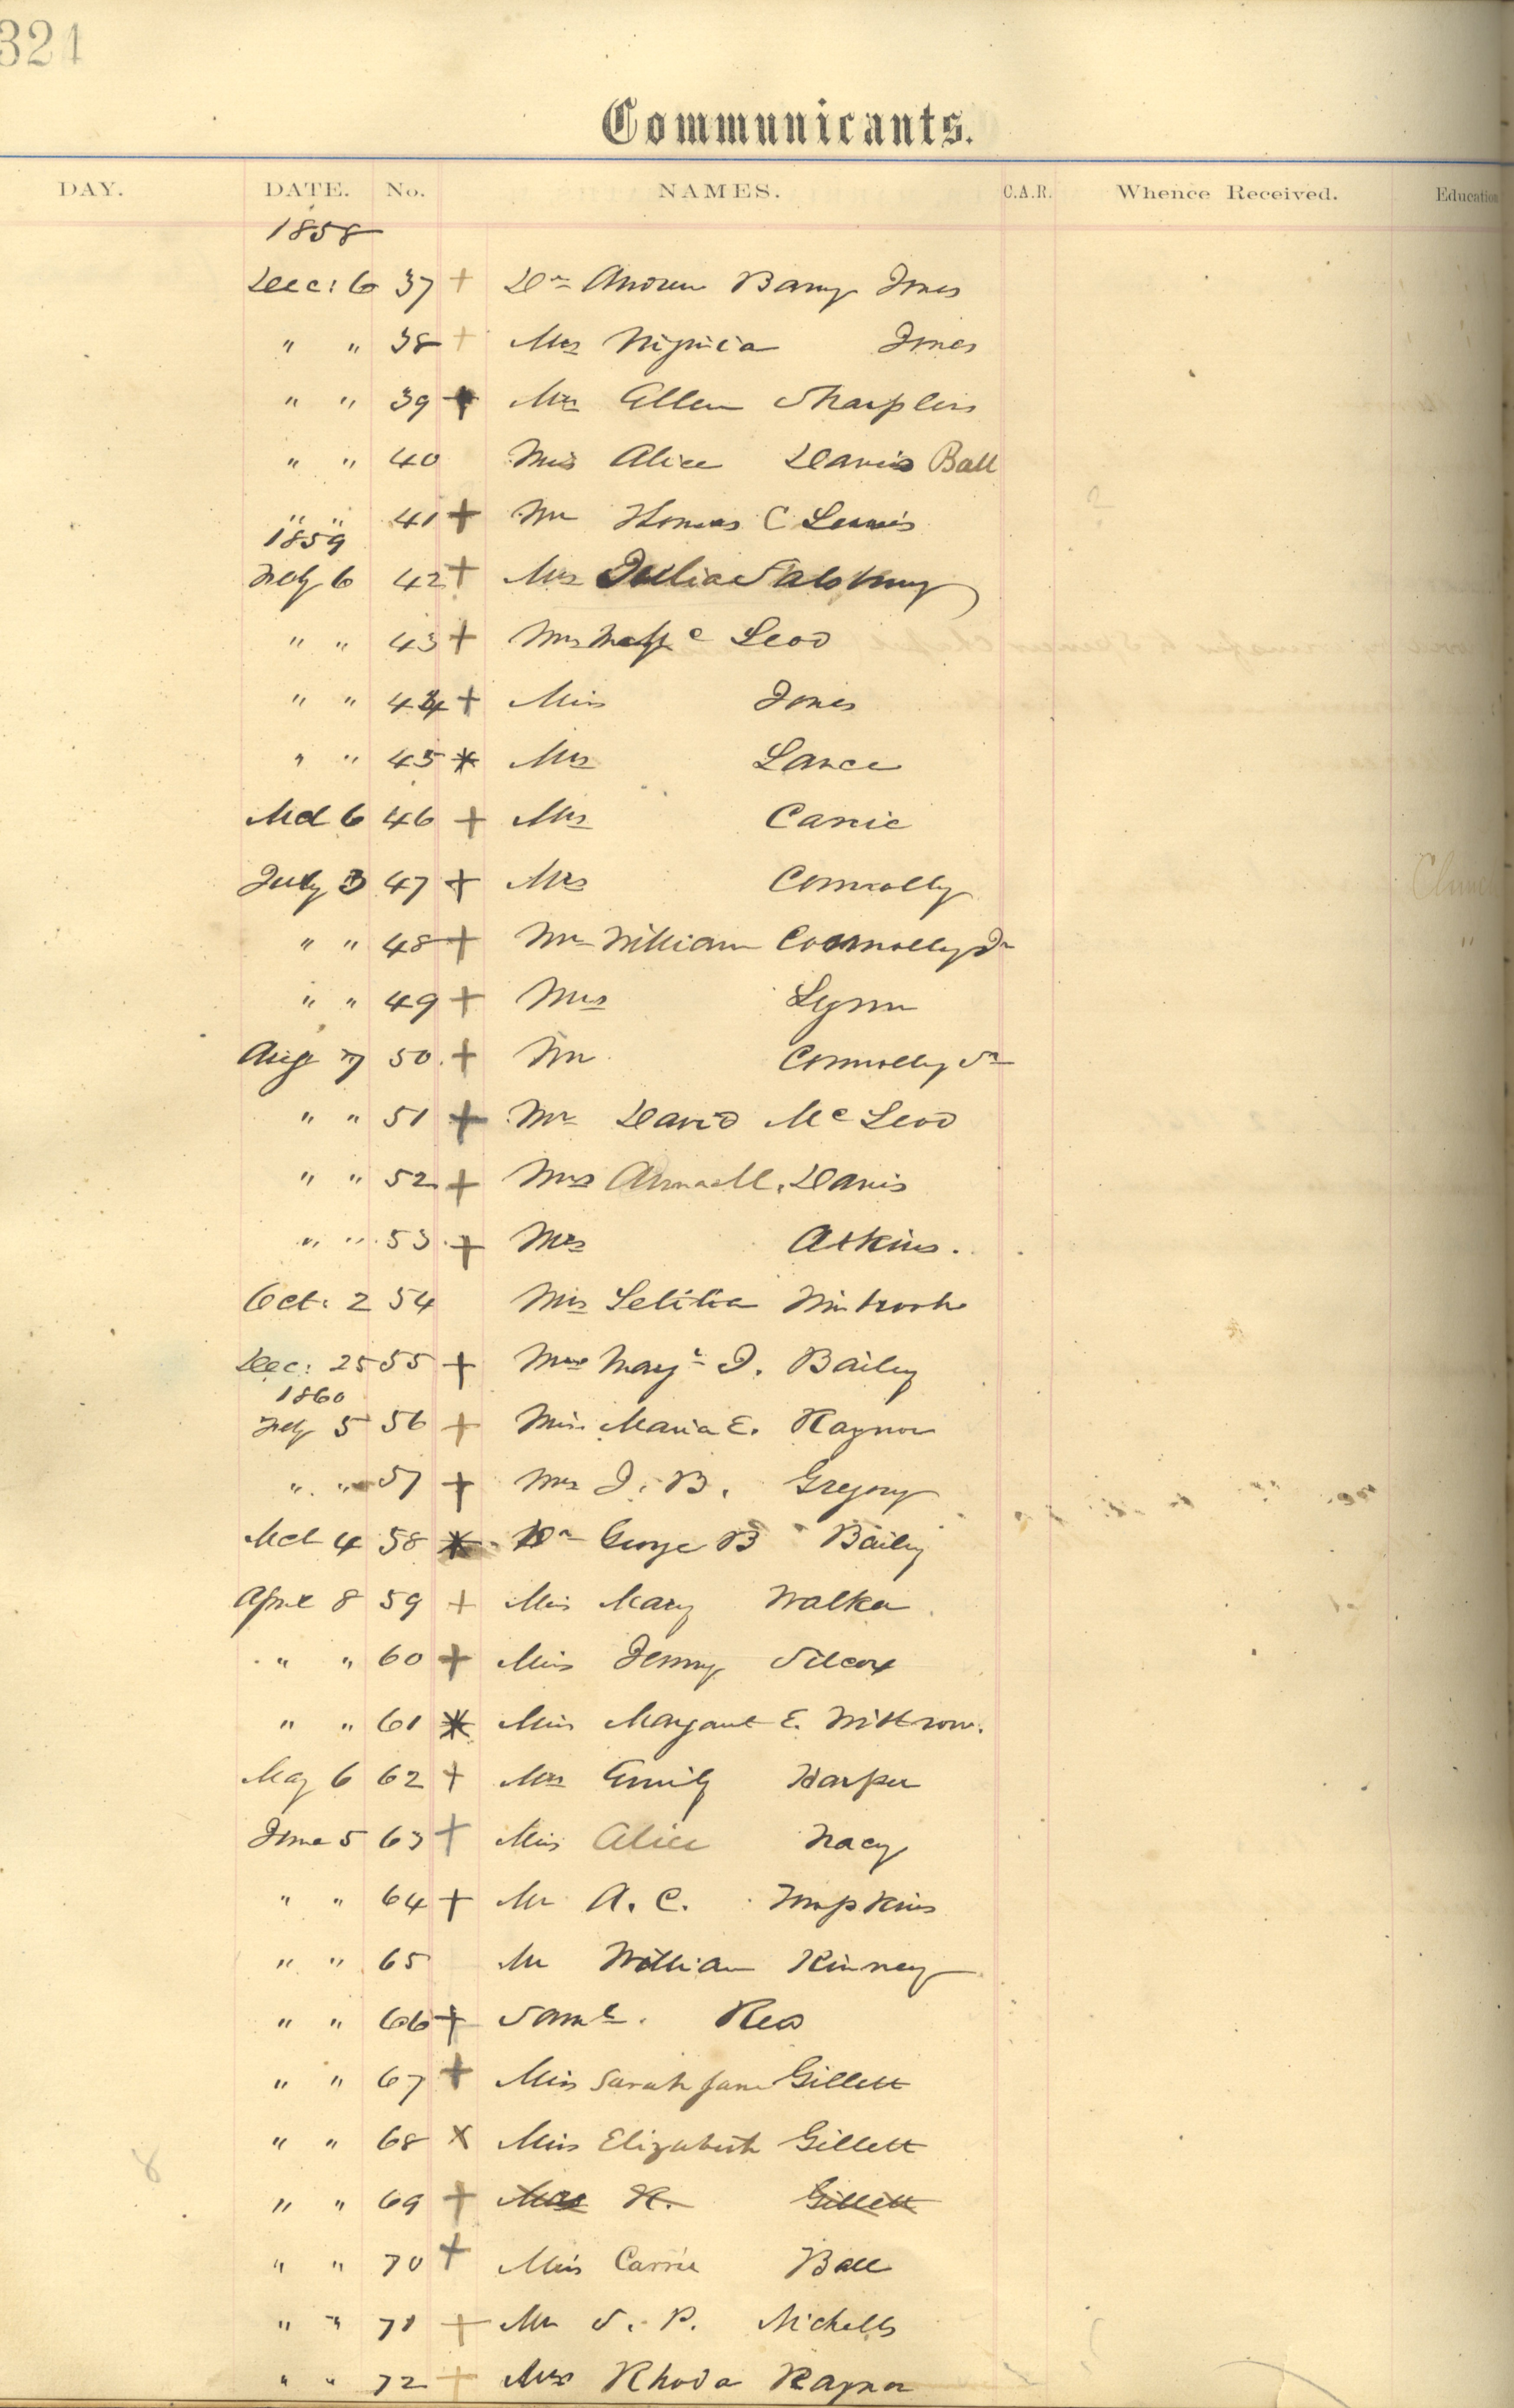 321
Communicants.
DAY. DATE. No. NAMES. C.A.R. Whence Received. Education
1858
Dec: 6 37 + Dr Andrew Barry Jones
" " 38 + Mrs Virginia Jones
" " 39 + Mrs Ellen Sharpless
" " 40 Miss Alice Davis Ball
" " 41 + Mr Thomas C Lewis
1859
Feby 6 42 + Mrs Julia Salsbury
" " 43 + Mrs Mc Leod
" " 44 + Miss Jones
" " 45 * Mrs Lance
Mch 6 46 + Mrs Carrie
July 3 47 + Mrs Connolly
" " 48 + Mr William Connolly Jr
" " 49 + Mrs Lynn
Aug 7 50 + Mr Connolly Sr
" " 51 + Mr David Mc Leod
" " 52 + Mrs Anna M. Davis
" " 53 + Mrs Atkins.
Oct: 2 54 Miss Letitia
Dec: 25 55 + Mrs J. Bailey
1860
Feby 5 56 + Miss Maria E. Raynor
" " 57 + Mrs J. B. Gregory
Mch 4 58 * Dr George B Baily
April 8 59 + Miss Mary Walker
" " 60 + Miss Jenny Silcox
" " 61 * Miss Margaret E. Withrow.
May 6 62 + Mrs Emily Harper
June 5 63 + Miss Alice Nacy
" " 64 + Mr A. C. Tompkins
" " 65 Mr William Kinney
" " 66 + Saml. Rea
" " 67 + Miss Sarah Jane Gillett
" " 68 x Miss Elizabeth Gillett
" " 69 + Mrs R. Gillett
" " 70 + Miss Carrie Ball
" " 71 + Mr S. P. Nicholls
" " 72 + Mrs Rhoda Raynor